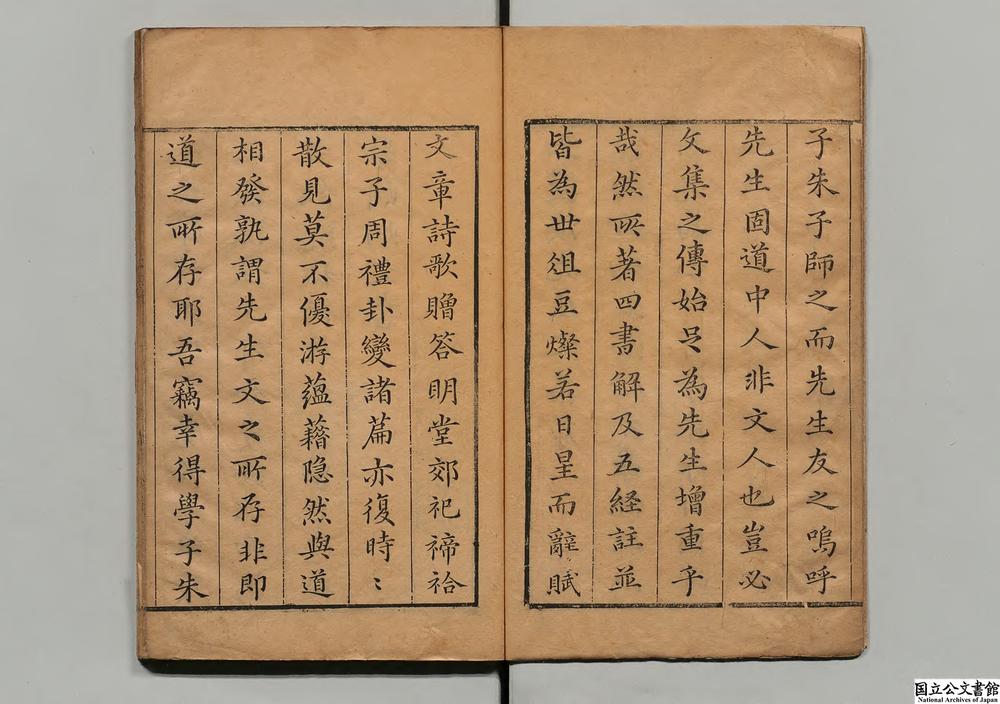 子朱子師之而先生友之嗚呼
先生固道中人非文人也豈必
文集之傳始足為先生增重乎
哉然所著四書解及五経註並
皆為世俎豆燦若日星而辭賦
文章詩歌贈答明堂郊祀禘祫
宗子周禮卦變諸篇亦復時〻
散見莫不優游蘊藉隐然與道
相發孰謂先生文之所存非即
道之所存耶吾竊幸得學子朱
国立公文書館
National Archives of Japan